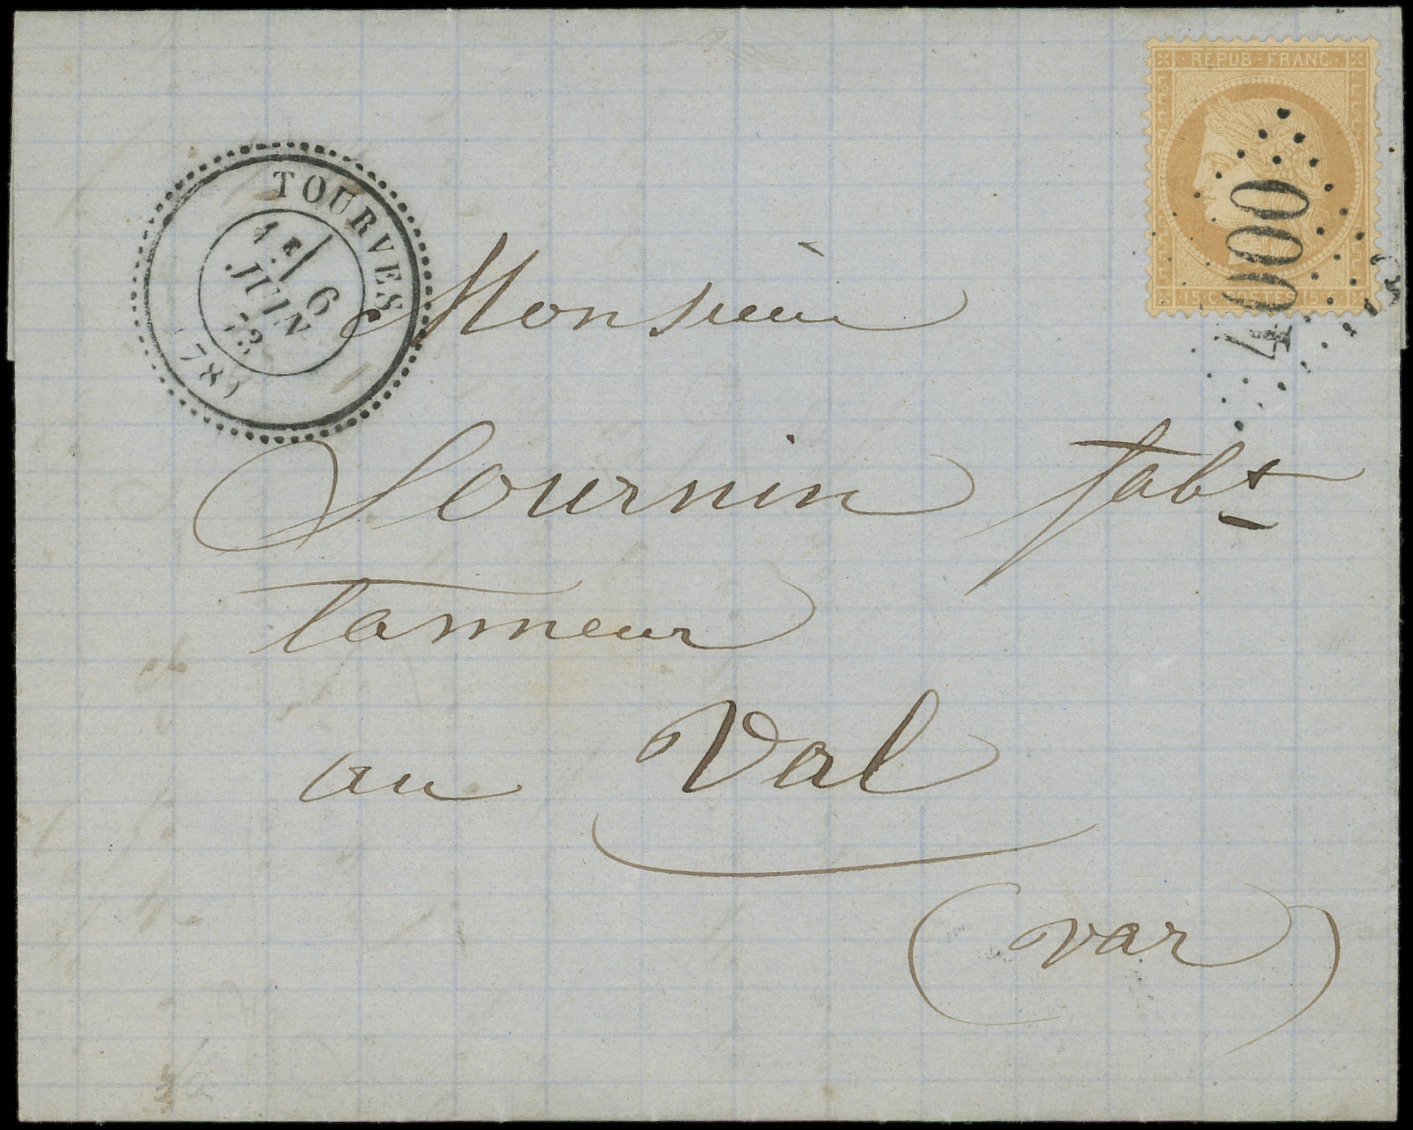 REPUB · FRANC
4000
TOURVES
1E
6
JUIN
73
(78)
Monsieur
Sournin fabt
tanneur
au Val
(var)